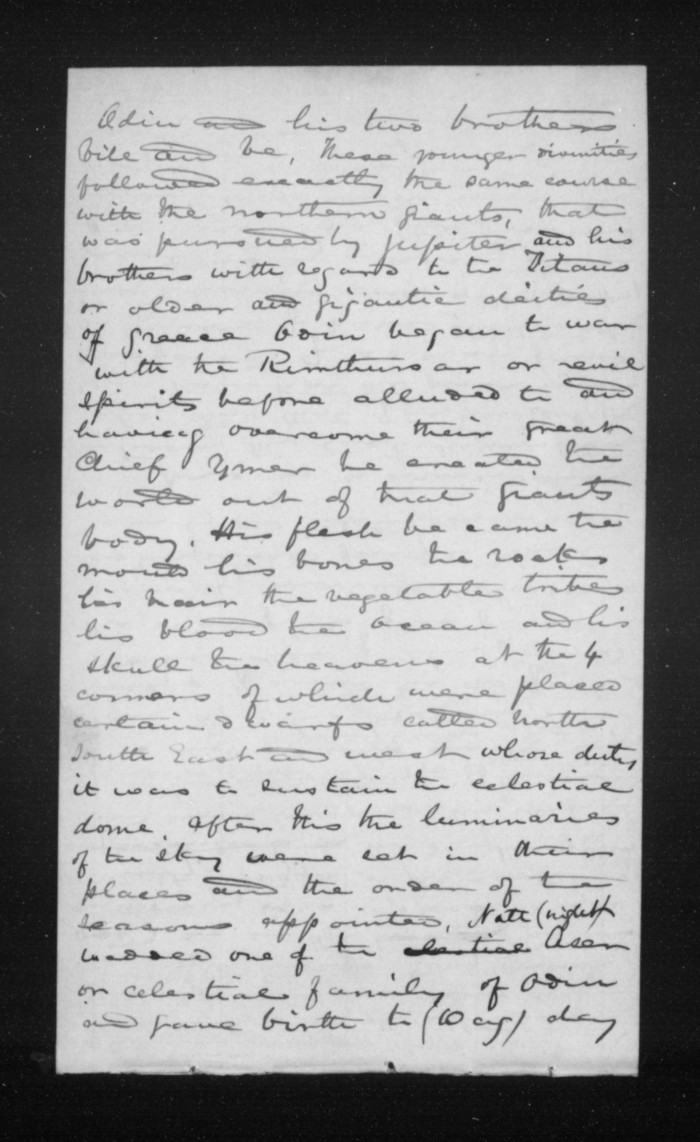 Odin and his two brothers
Vile and Ve, These younger divinities
followed exactly the same course
with the northern giants, that
was pursued by Jupiter and his
brothers with regard to the Titans
or older and gigantic deities
of Greece Odin began to war
with the Rimthursar or evil
spirits before alluded to and
having overcome their great
Chief Ymer he created the
world out of that giants
body. His flesh became the
mould his bones the rocks
his hair the vegetable tribes
his blood the ocean and his
skull the heavens at the 4
corners of which were placed
certain dwarfs called North
South East and west whose duty
it was to sustain the celestial
dome. After this the luminaries
of the sky were set in their
places and the order of the
seasons appointed, Natt (night)
wedded one of the Aser
or celestial family of Odin
and gave birth to (Dag) day